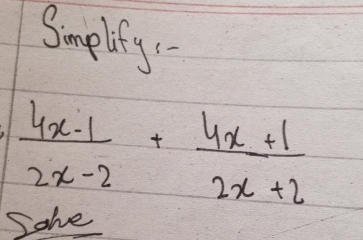 Simplify:-
4x-1/2x-2 + 4x+1/2x+2
Solve